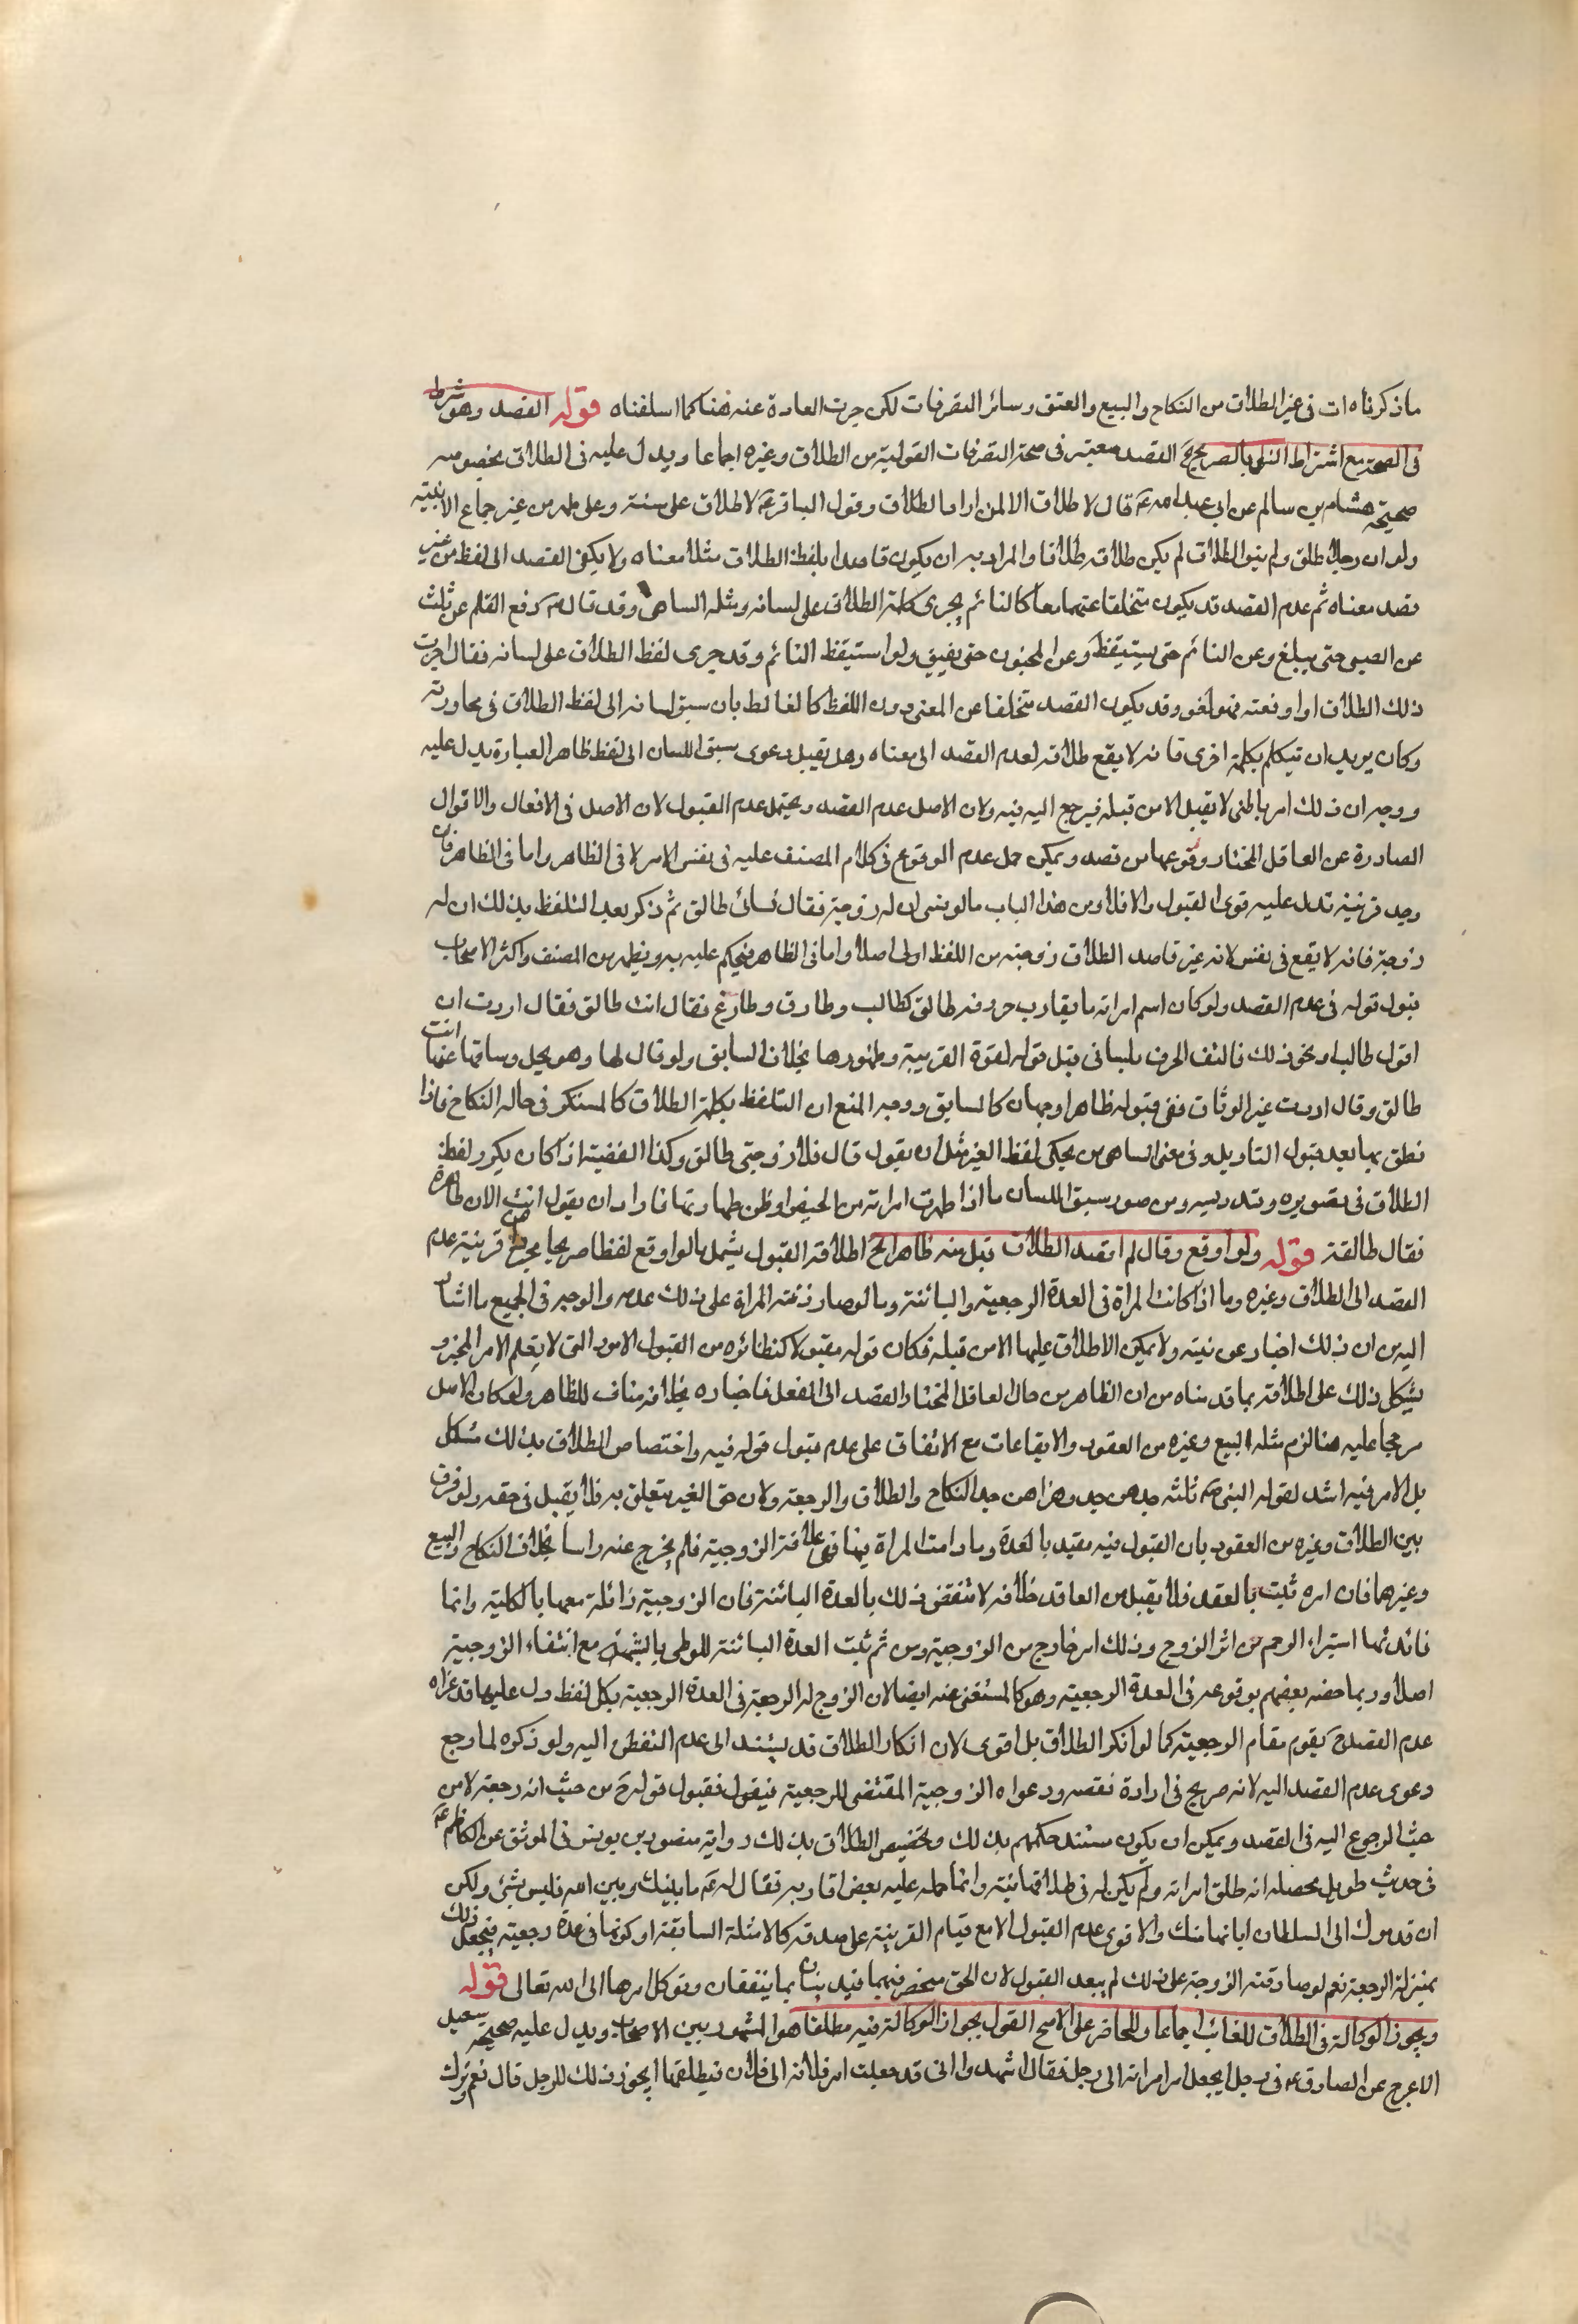 ما ذكرناه ات فى غير الطلاق من النكاح والبيع والعتق وسائر التصرفات لكن جرت العادة عنه هنا كما اسلفناه قوله القصد وهو شرط
فى الصحة مع اشتراط النطق بالصريح الخ القصد معتبر فى صحة التصرفات القولية من الطلاق وغيره اجماعا ويدل عليه فى الطلاق بخصوصه
صحيحة هشام بن سالم عن ابى عبد الله ع قال لا طلاق الا لمن اراد الطلاق وقول الباقر ع لا طلاق على سنة وعلى طهر من غير جماع الا بنية
ولو ان رجلا طلق ولم ينو الطلاق لم يكن طلاقه طلاقا والمراد به ان يكون قاصدا بلفظ الطلاق مثلا معناه ولا يكفى القصد الى لفظ من غير
قصد معناه ثم عدم القصد قد يكون متخلفا عنهما معا كالنائم يجرى كلمة الطلاق على لسانه ومثله الساهى وقد قال ص رفع القلم عن ثلث
عن الصبى حتى يبلغ وعن النائم حتى يستيقظ وعن المجنون حتى يفيق ولو استيقظ النائم وقد جرى لفظ الطلاق على لسانه فقال اجرت
ذلك الطلاق او اوقعته فهو لغو وقد يكون القصد متخلفا عن المعنى دون اللفظ كالغالط بان سبق لسانه الى لفظ الطلاق فى محاورته
وكان يريد ان يتكلم بكلمة اخرى فانه لا يقع طلاقه لعدم القصد الى معناه وهل تقبل دعوى سبق اللسان الى لفظ ظاهر العبارة يدل عليه
ووجه ان ذلك امر باطنى لا يقبل الا من قبله فيرجع اليه فيه ولان الاصل عدم القصد ويحتمل عدم القبول لان الاصل فى الافعال والاقوال
الصادرة عن العاقل المختار وقوعها من قصد ويمكن حمل عدم الوقوع فى كلام المصنف عليه فى نفس الامر لا فى الظاهر واما فى الظاهر فان
وجد قرينة تدل عليه قوى القبول والا فلا ومن هذا الباب ما لو نسى ان له زوجة فقال نسائى طالق ثم ذكر بعد التلفظ بذلك ان له
زوجة فانه لا يقع فى نفس لانه غير قاصد الطلاق زوجته من اللفظ اولى اصلا واما فى الظاهر فيحكم عليه به ويظهر من المصنف واكثر الاصحاب
قبول قوله فى عدم القصد ولو كان اسم امراته ما يقارب حروف طالق كطالب وطارق وطارغ فقال انت طالق فقال اردت ان
اقول طالب او نحو ذلك فالتف الحرف بلسانى قبل قوله لقوة القرينة وظهورها بخلاف السابق ولو قال لها وهو يحل وساقها عنها انت
طالق وقال اردت غير الوثاق ففى قبوله ظاهرا وجهان كالسابق ووجه المنع ان التلفظ بكلمة الطلاق كالمستنكر فى حالة النكاح فاذا
نطق بها بعد قبول التاويل وفى معنى الساهى من يحكى لفظ الغير مثل ان يقول قال فلان زوجتى طالق وكذا الفقيه اذا كان يكرر لفظ
الطلاق فى تصويره وتدريسه ومن صور سبق اللسان ما اذا طهرت امراته من الحيض او ظن طهارتها فاراد ان يقول انت الان طاهرة
فقال طالقة قوله ولو اوقع وقال لم اقصد الطلاق قبل منه ظاهرا الخ اطلاقه القبول يشمل ما لو اوقع لفظا صريحا مجردا عن قرينة عدم
القصد الى الطلاق وغيره وما اذا كانت المراة فى العدة الرجعية والبائنة وما لو صادقته المراة على ذلك عدمه والوجه فى الجميع ما اشار
اليه من ان ذلك اخبار عن نيته ولا يمكن الاطلاق عليها الا من قبله فكان قوله مقبولا كنظائره من القبول الامور التى لا يعلم الامر المخبر و
يشكل ذلك على اطلاقه بما قدمناه من ان الظاهر من حال العاقل المختار القصد الى الفعل فاخباره بخلافه مناف للظاهر ولو كان الاصل
مرجحا عليه هنا لزم مثله البيع وغيره من العقود والايقاعات مع الاتفاق على عدم قبول قوله فيه واختصاص الطلاق بذلك مشكل
بل الامر فيه اشد لقوله النبى ص ثلثه جدهن جد وهزلهن جد النكاح والطلاق والرجعة ولان حق الغير يتعلق به فلا يقبل فى حقه ولو فرق
بين الطلاق وغيره من العقود بان القبول فيه مقيد بالعدة وما دامت المراة فيها فهى علاقة الزوجية فلم يخرج عنه راسا بخلاف النكاح والبيع
وغيرهما فان امره ثبت بالعقد فلا يقبل من العاقد خلافه لانتقض ذلك بالعدة البائنة فان الزوجية زائلة معها بالكلية وانما
فائدتها استبراء الرحم من اثر الزوج وذلك امر خارج من الزوجية ومن ثم ثبت العدة البائنة للوطى بالشبهة مع انتفاء الزوجية
اصلا وربما خصه بعضهم بوقوعه فى العدة الرجعية وهو كالمستغنى عنه ايضا لان الزوج له الرجعة فى العدة الرجعية بكل لفظ دل عليها قدعواه
عدم القصد ح يقوم مقام الرجعية كما لو انكر الطلاق بل اقوى لان انكار الطلاق قد يستند الى عدم التفطن اليه ولو ذكره لما رجع
دعوى عدم القصد اليه لانه صريح فى ارادة نقصه ودعواه الزوجية المقتضى للرجعية فيقول فقبول قوله ح من حيث انه رجعة لا من
حيث الرجوع اليه فى القصد ويمكن ان يكون مستند حكمهم بذلك وتخصيص الطلاق بذلك رواية منصور بن يونس فى الموثق عن الكاظم ع
فى حديث طويل محصله انه طلق امراته ولم يكن له فى طلاقها نية وانما حمله عليه بعض اقاربه فقال له ع ما بينك وبين الله فليس بشئ ولكن
ان قدموك الى السلطان ابانها منك والاقوى عدم القبول الا مع قيام القرينة على صدقه كالامثلة السابقة او كونها فى عدة رجعية فيجعل ذلك
بمنزلة الرجعة نعم لو صادقته الزوجة على ذلك لم يبعد القبول لان الحق منحصر فيهما فيدينان بما يتفقان ويوكل امرها الى الله تعالى قوله
ويجوز الوكالة فى الطلاق للغائب اجماعا وللحاضر على الاصح القول بجواز الوكالة فيه مطلقا هو المشهور بين الاصحاب ويدل عليه صحيحة سعيد
الاعرج عن الصادق ع فى رجل يجعل امر امراته الى رجل فقال اشهدوا انى قد جعلت امر فلانه الى فلان فيطلقها ايجوز ذلك للرجل قال نعم ترك